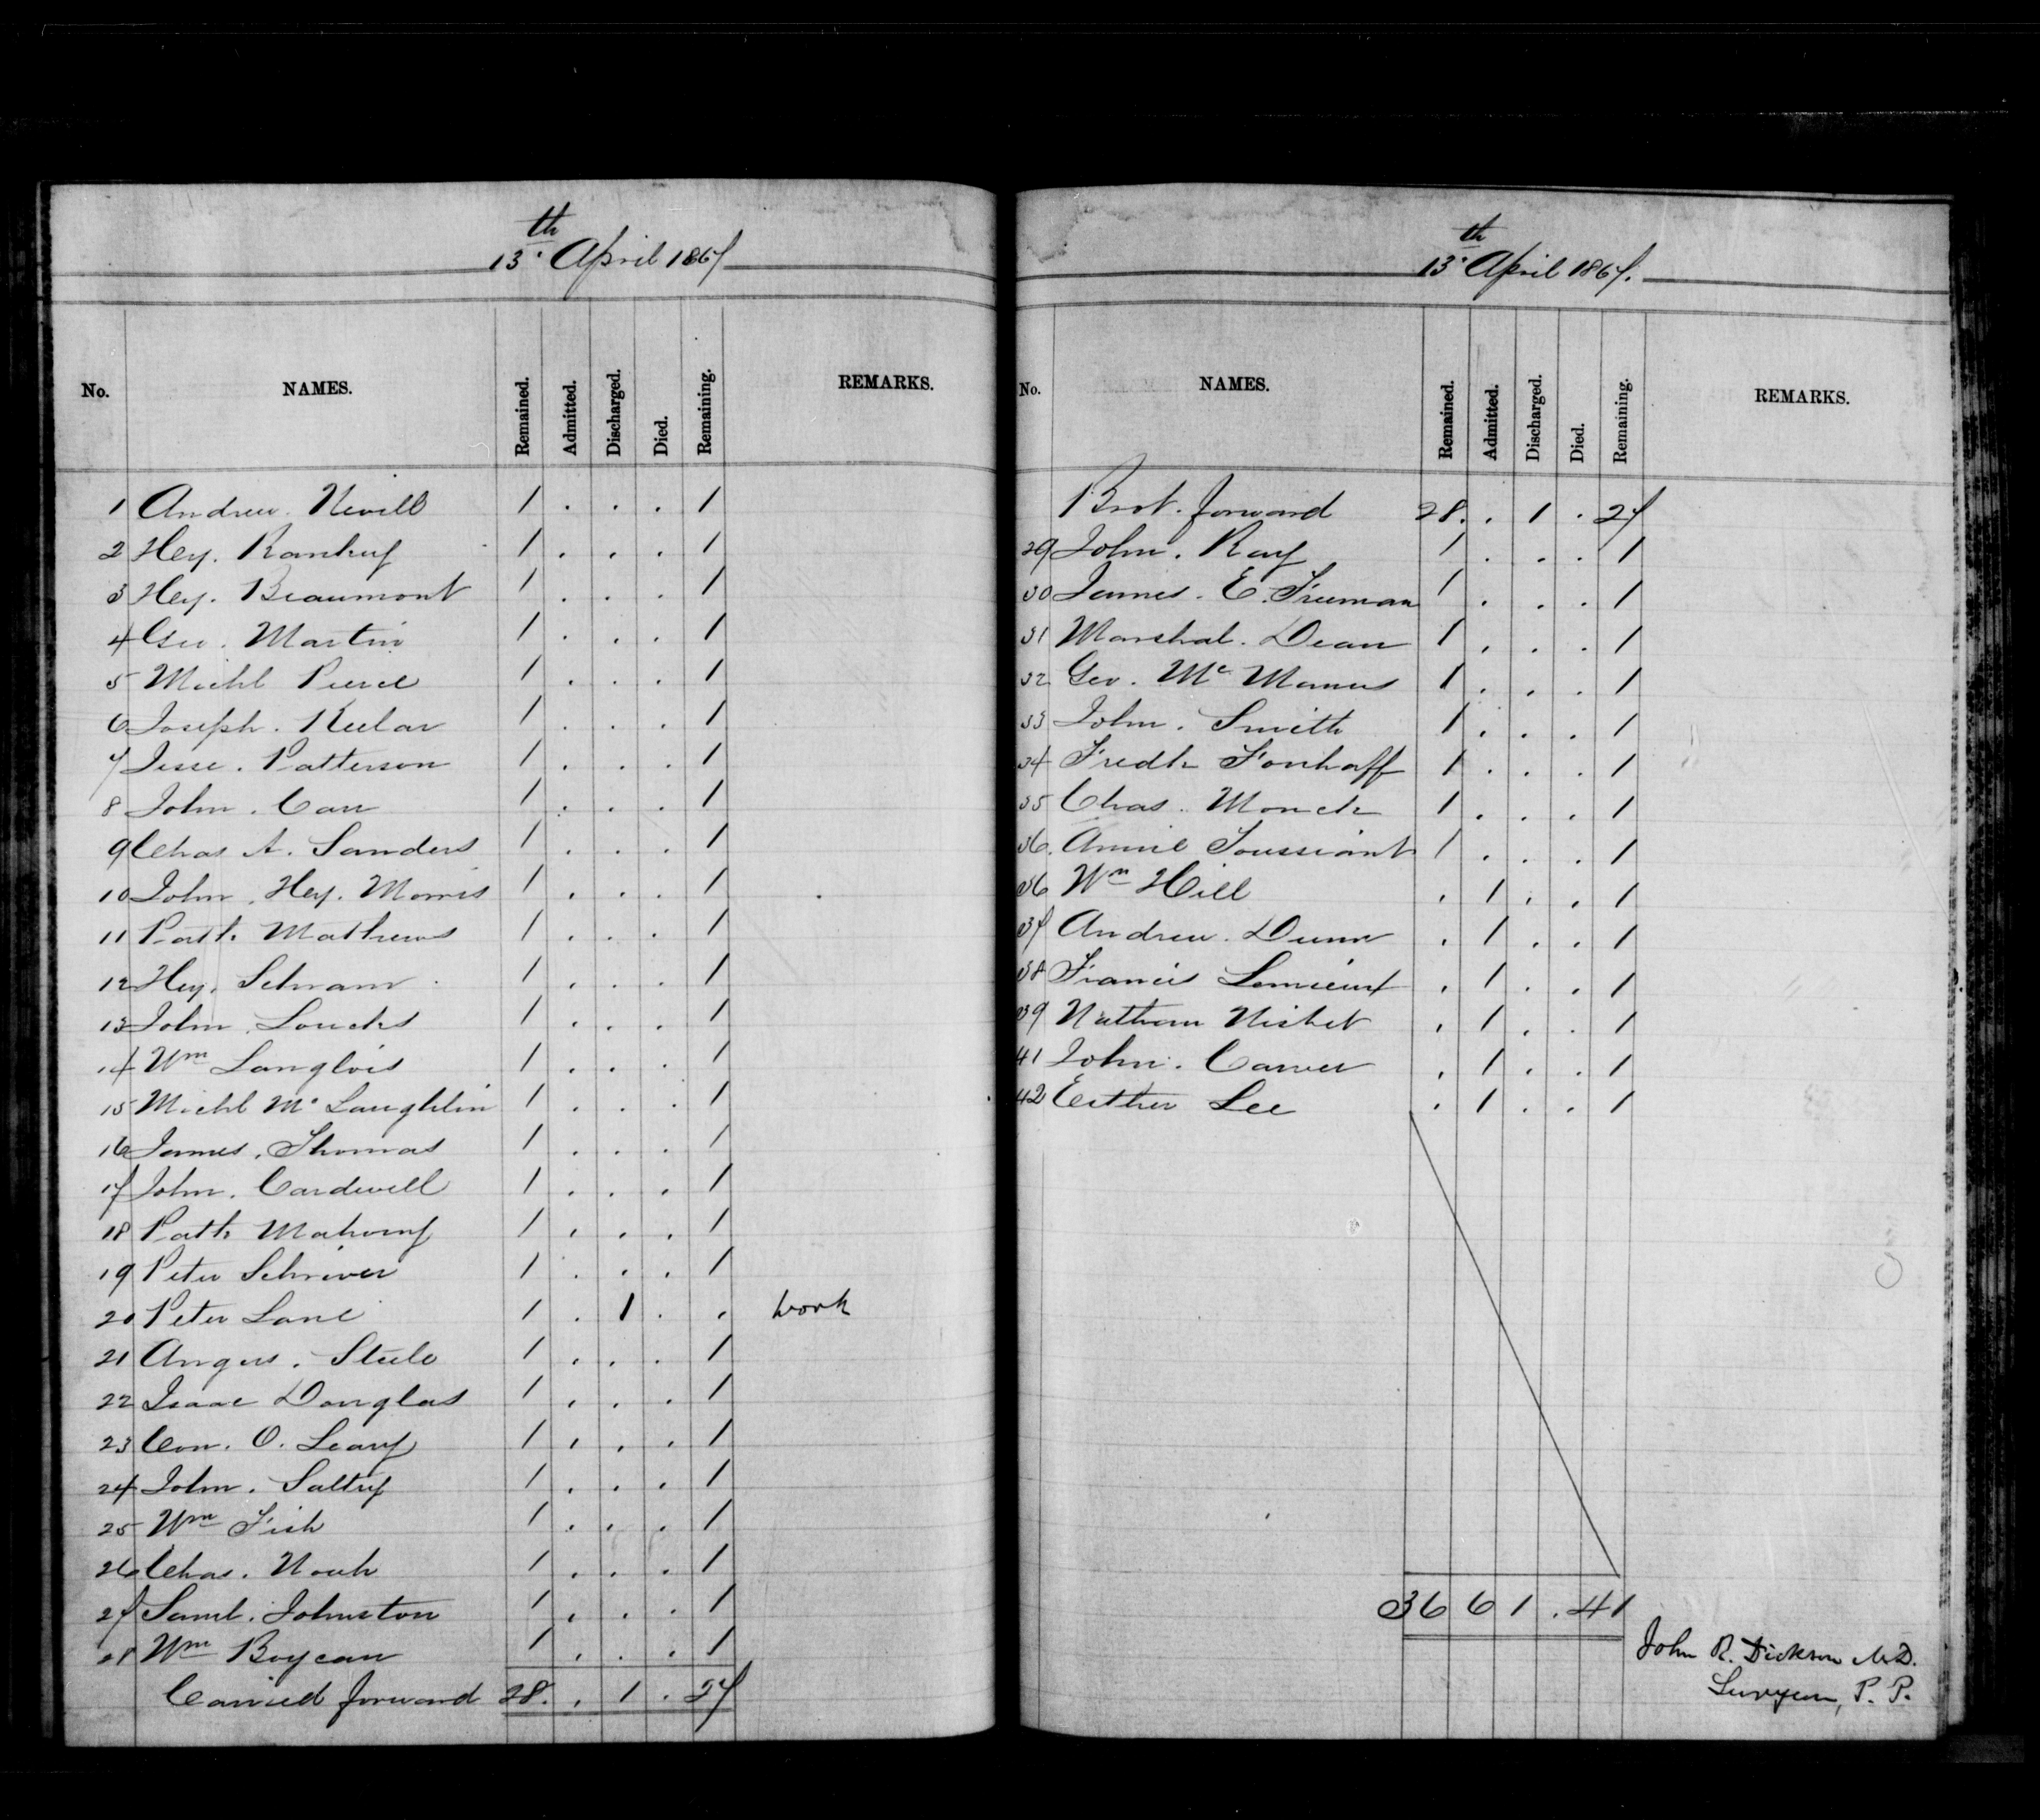 13th April 1867
No. NAMES. Remained. Admitted. Discharged. Died. Remaining. REMARKS.
1 Andrew. Nevill 1 . . . 1
2 Hey. 1 . . . 1
3 Hey. Beaumont 1 . . . 1
4 Geo. Martin 1 . . . 1
5 Michl Pierce 1 . . . 1
6 Joseph. Keelar 1 . . . 1
7 Jesse. Patterson 1 . . . 1
8 John. Carr 1 . . . 1
9 Chas A. Sanders 1 . . . 1
10 John. Hey. Morris 1 . . . 1
11 Patk. Mathews 1 . . . 1
12 Hey. Schram 1 . . . 1
13 John. Loucks 1 . . . 1
14 Wm Langlois 1 . . . 1
15 Michl Mc Laughlin 1 . . . 1
16 James. Thomas 1 . . . 1
17 John. Cardwell 1 . . . 1
18 Patk Mahony 1 . . . 1
19 Peter Schriver 1 . . . 1
20 Peter Lane 1 . 1 . . work
21 Angus. Steele 1 . . . 1
22 Isaac Douglas 1 . . . 1
23 Con. O. Leary 1 . . . 1
24 John. Saltry 1 . . . 1
25 Wm Fish 1 . . . 1
26 Chas. Noah 1 . . . 1
27 Saml. Johnston 1 . . . 1
28 Wm Boycan 1 . . . 1
Carried forward 28. . 1 . 27
13th April 1867.
No. NAMES. Remained. Admitted. Discharged. Died. Remaining. REMARKS.
Brot. forward 28. . 1 . 27
29 John. Ray 1 . . . 1
30 James. E. Freeman 1 . . . 1
31 Marshal. Dean 1 . . . 1
32 Geo. Mc Manus 1 . . . 1
33 John. Smith 1 . . . 1
34 Fredk Fonhoff 1 . . . 1
35 Chas. Monck 1 . . . 1
36. Annie Toussiant 1 . . . 1
36 Wm Hill . 1 . . 1
37 Andrew. Dunn . 1 . . 1
38 Francis Lemieux . 1 . . 1
39 Nathan Nisbet . 1 . . 1
41 John. Carver . 1 . . 1
42 Esther Lee . 1 . . 1
36 6 1 . 41
John R. Dickson M.D.
Surgeon, P. P.